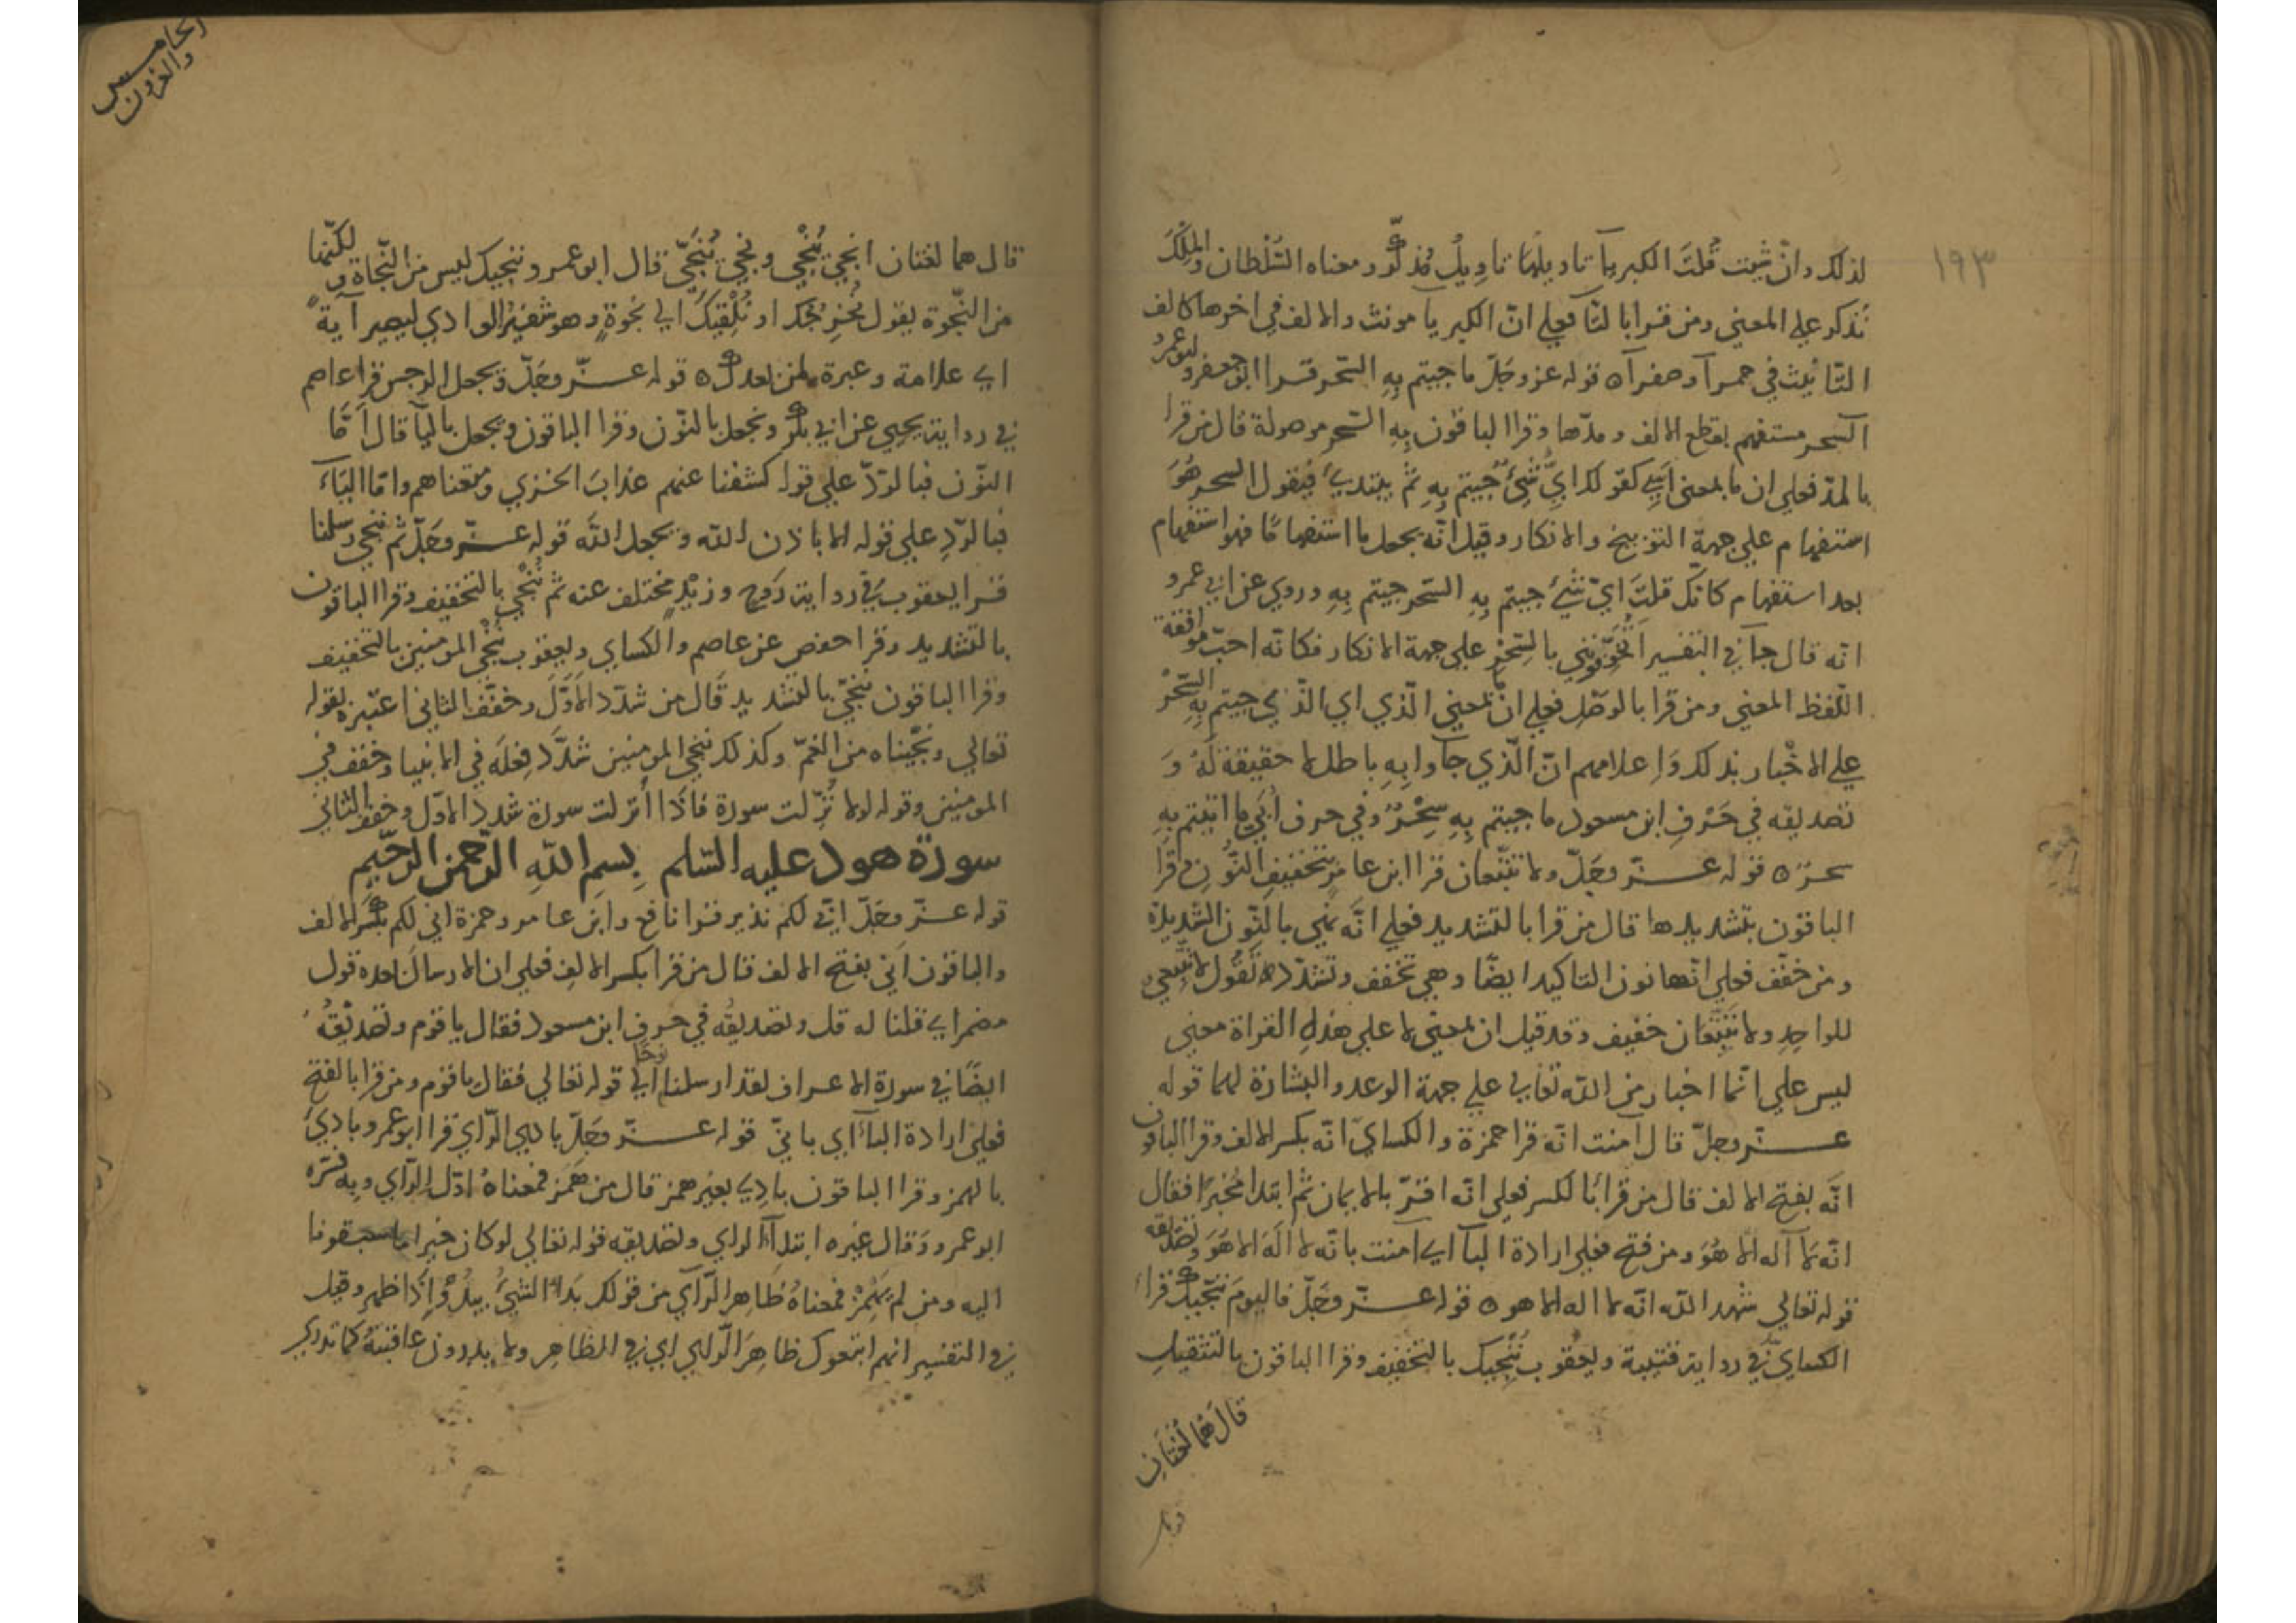 ١٩٣
لذلك وان شيت قلت الكبريآ تاويلها تاويل مذكّر ومعناه السُّلطان والمُلْكَ
تذكر علي المعني ومن قرا بالتا فعلي انّ الكبريا مونث والالف في اخرها كالف
التّانيث في حمرآ وصفرآ ه قوله عز وجَلّ ما جيتم بِهِ السّحر قرا ابو جعفر وابو عمرو
آلسحر مستفهم بقطع الالف ومدّها وقرا الباقون بِهِ السّحر موصولة قال من قرا
بالمدّ فعلي ان ما بمعنى اَيّ كقولك ايُّ شيءٍ جيتم بِهِ ثمّ يبتدئ فيقول السحر هُوَ
استفهام علي جهة التوبيخ والانكار وقيل انّه يجعل ما استفهامًا فهو استفهام
بعد استفهام كانّك قلتَ ايّ شيء جيتم بِهِ السّحر جيتم بِهِ وروي عن ابي عمرو
انّه قال جا في التفسير اتخوّفونني بالسِّحر علي جهة الانكار فكانّه احبّ موافقة
اللّفظ المعني ومن قرا بالوصْل فعلي انّ ما بمعني الّذي اي الّذي جيتم بِهِ السّحْرُ
علي الاخْبار بذلك وَاِعلامهم انّ الّذي جآوا بِهِ باطل لا حقيقة لَهُ وَ
تصديقه في حَرْفِ ابن مسعود ما جيتم بِهِ سِحْرٌ وفي حرف اُبَيّ ما اتيتم بِهِ
سحرٌ ه قوله عزّ وجَلّ ولا تتّبعان قرا ابن عامرٍ بتخفيفِ النّونِ وقرا
الباقون بتشديدها قال من قرا بالتشديد فعلي انّه نهي بالنّون الشّديدة
ومن خفّف فعلي انّها نون التاكيد ايضًا وهي تخفف وتشدّد تَقُول لا تتّبعن
للواحِدِ ولا تتّبِعَان خفيف وقد قيل ان معني لا علي هذِهِ القراة معني
ليس علي انّها اخبار من الله تعالي علي جهة الوعد والبشارة لهما قوله
عزّ وجلّ قال آمنت انّه قرا حمزة والكساي انّه بكسر الالف وقرا الباقون
انّه بفتح الالف قال من قرا بالكسر فعلي انّه اقرّ بالايمان ثمّ ابتدا مُخبرًا فقال
انّه لا آله الا هُوَ ومن فتح فعلي ارادة البآ اي آمنت بانّه لا الَه الا هُوَ وتصديقه
قوله تعالي شهد الله انّه لا اله الا هو ه قوله عزّ وجَلّ فاليومَ ننجّيك قرا
الكساي في رواية قتيبة ويعقوب نُنْجِيك بالتخفيف وقرا الباقون بالتثقيل
قالَ هُمَا لُغتانِ
الخامس
والعشرون
قال هما لغتان انجي يُنْجي ونجّي يُنَجّي قال ابو عمرو وننجيك ليس من النّجاة لكنّها
من النّجوة يقول نُخْرِجُكَ او نُلْقِيكَ الي نجوةٍ وهو شفير الوادي ليصير آيةً
اي علامة وعبرة لمن بعدك ه قوله عزّ وجَلّ ويجعل الرجس قرا عاصم
في رواية يحيي عن ابي بكر ونجعل بالنّون وقرا الباقون ويجعل باليآ قال امّا
النّون فبالردّ علي قوله كشفنا عنهم عذابَ الخزي ومتعناهم وامّا اليَاءَ
فبالرّدِ علي قوله الا باذن الله ويجعل الله قوله عزّ وجَلّ ثم ننجي رسلنا
قرا يعقوب في رواية رَوحٍ وزيْدٍ مختلف عنه ثم نُنْجي بالتخفيف وقرا الباقون
بالتشديد وقرا حفص عن عاصم والكساي ويعقوب نُنْجي المومنين بالتخفيف
وقرا الباقون ننجّي بالتشديد قال من شدّد الاوّلَ وخفّف الثاني اعتبره بقوله
تعالي ونجّيناه من الغمّ وكذلك ننجي المومنين شدّدَ فِعلَه في الانبيا وخفف في
المومنين وقوله لولا نُزّلت سورة فاذا اُنزلت سورة شدد الاوّل وخفف الثاني
سورة هود عليه السّلم بِسمِ اللهِ الرّحمن الرّحيم
قوله عزّ وجَلّ انّي لكم نذير قرا نافع وابن عامر وحمزة اني لكم بكسر الالف
والباقون اَني بفتح الالف قال من قرا بكسر الالِف فعلي ان الارسالَ بعده قول
مضمر اي قلنا له قل وتصديقُه في حرف ابن مسعود فقال يا قوم وتصديقُهُ
ايضًا في سورة الاعراف لقد ارسلنا نوحًا الي قوله تعالي فقال يا قوم ومن قرا بالفتح
فعلي ارادة البآء اي بانّي قوله عزّ وجَلّ بادي الرّاي قرا ابو عمرو باديَ
بالهمز وقرا الباقون بادِي بغير همز قال من هَمَز فمعناهُ اوّل الرّاي وبِهِ فسّره
ابو عمرو وَقال غيره ابتدآءَ الراي وتصديقه قوله تعالي لو كان خيرا ما سبقونا
اليه ومن لم يَهْمِزْ فمعناهُ ظاهر الرّآي من قولك بَدا الشيءُ يبدُوْ اِذا ظهر وقيل
في التفسير انهم اتبعوك ظاهِرَ الرّاي اي في الظاهِر ولا يدرون عاقبتهُ كما تدري